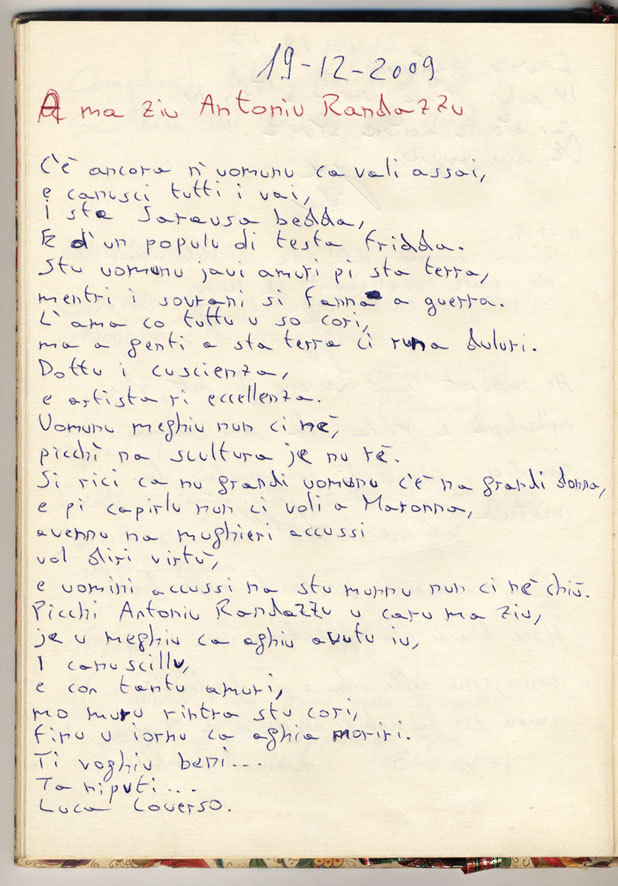 19-12-2009
A ma ziu Antoniu Randazzu
C'è ancora n'uomunu ca vali assai,
e canusci tutti i vai,
I sta Sarausa bedda,
E d'un populu di testa fridda.
Stu uomunu javi amuri pi sta terra,
mentri i sovrani si fanna a guerra.
L'ama co tuttu u so cori,
ma a genti a sta terra ci runa duluri.
Dottu i cuscienza,
e artista ri eccellenza.
Uomunu meghiu nun ci nè,
picchì na scultura je nu rè.
Si rici ca nu grandi uomunu c'è na grandi donna,
e pi capirlu nun ci voli a Maronna,
avennu na mughieri accussi
vol diri virtù,
e uomini accussi na stu munnu nun ci nè chiù.
Picchi Antoniu Randazzu u caru ma ziu,
je u meghiu ca aghiu avutu iu,
I canuscillu,
e con tantu amuri,
mo muru rintra stu cori,
finu u iornu ca aghia moriri.
Ti voghiu beni...
To niputi...
Luca Loverso.